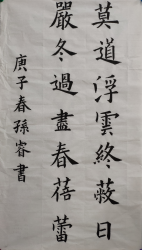 莫道浮雲終蔽日
嚴冬過盡春蓓蕾
庚子春孫容書